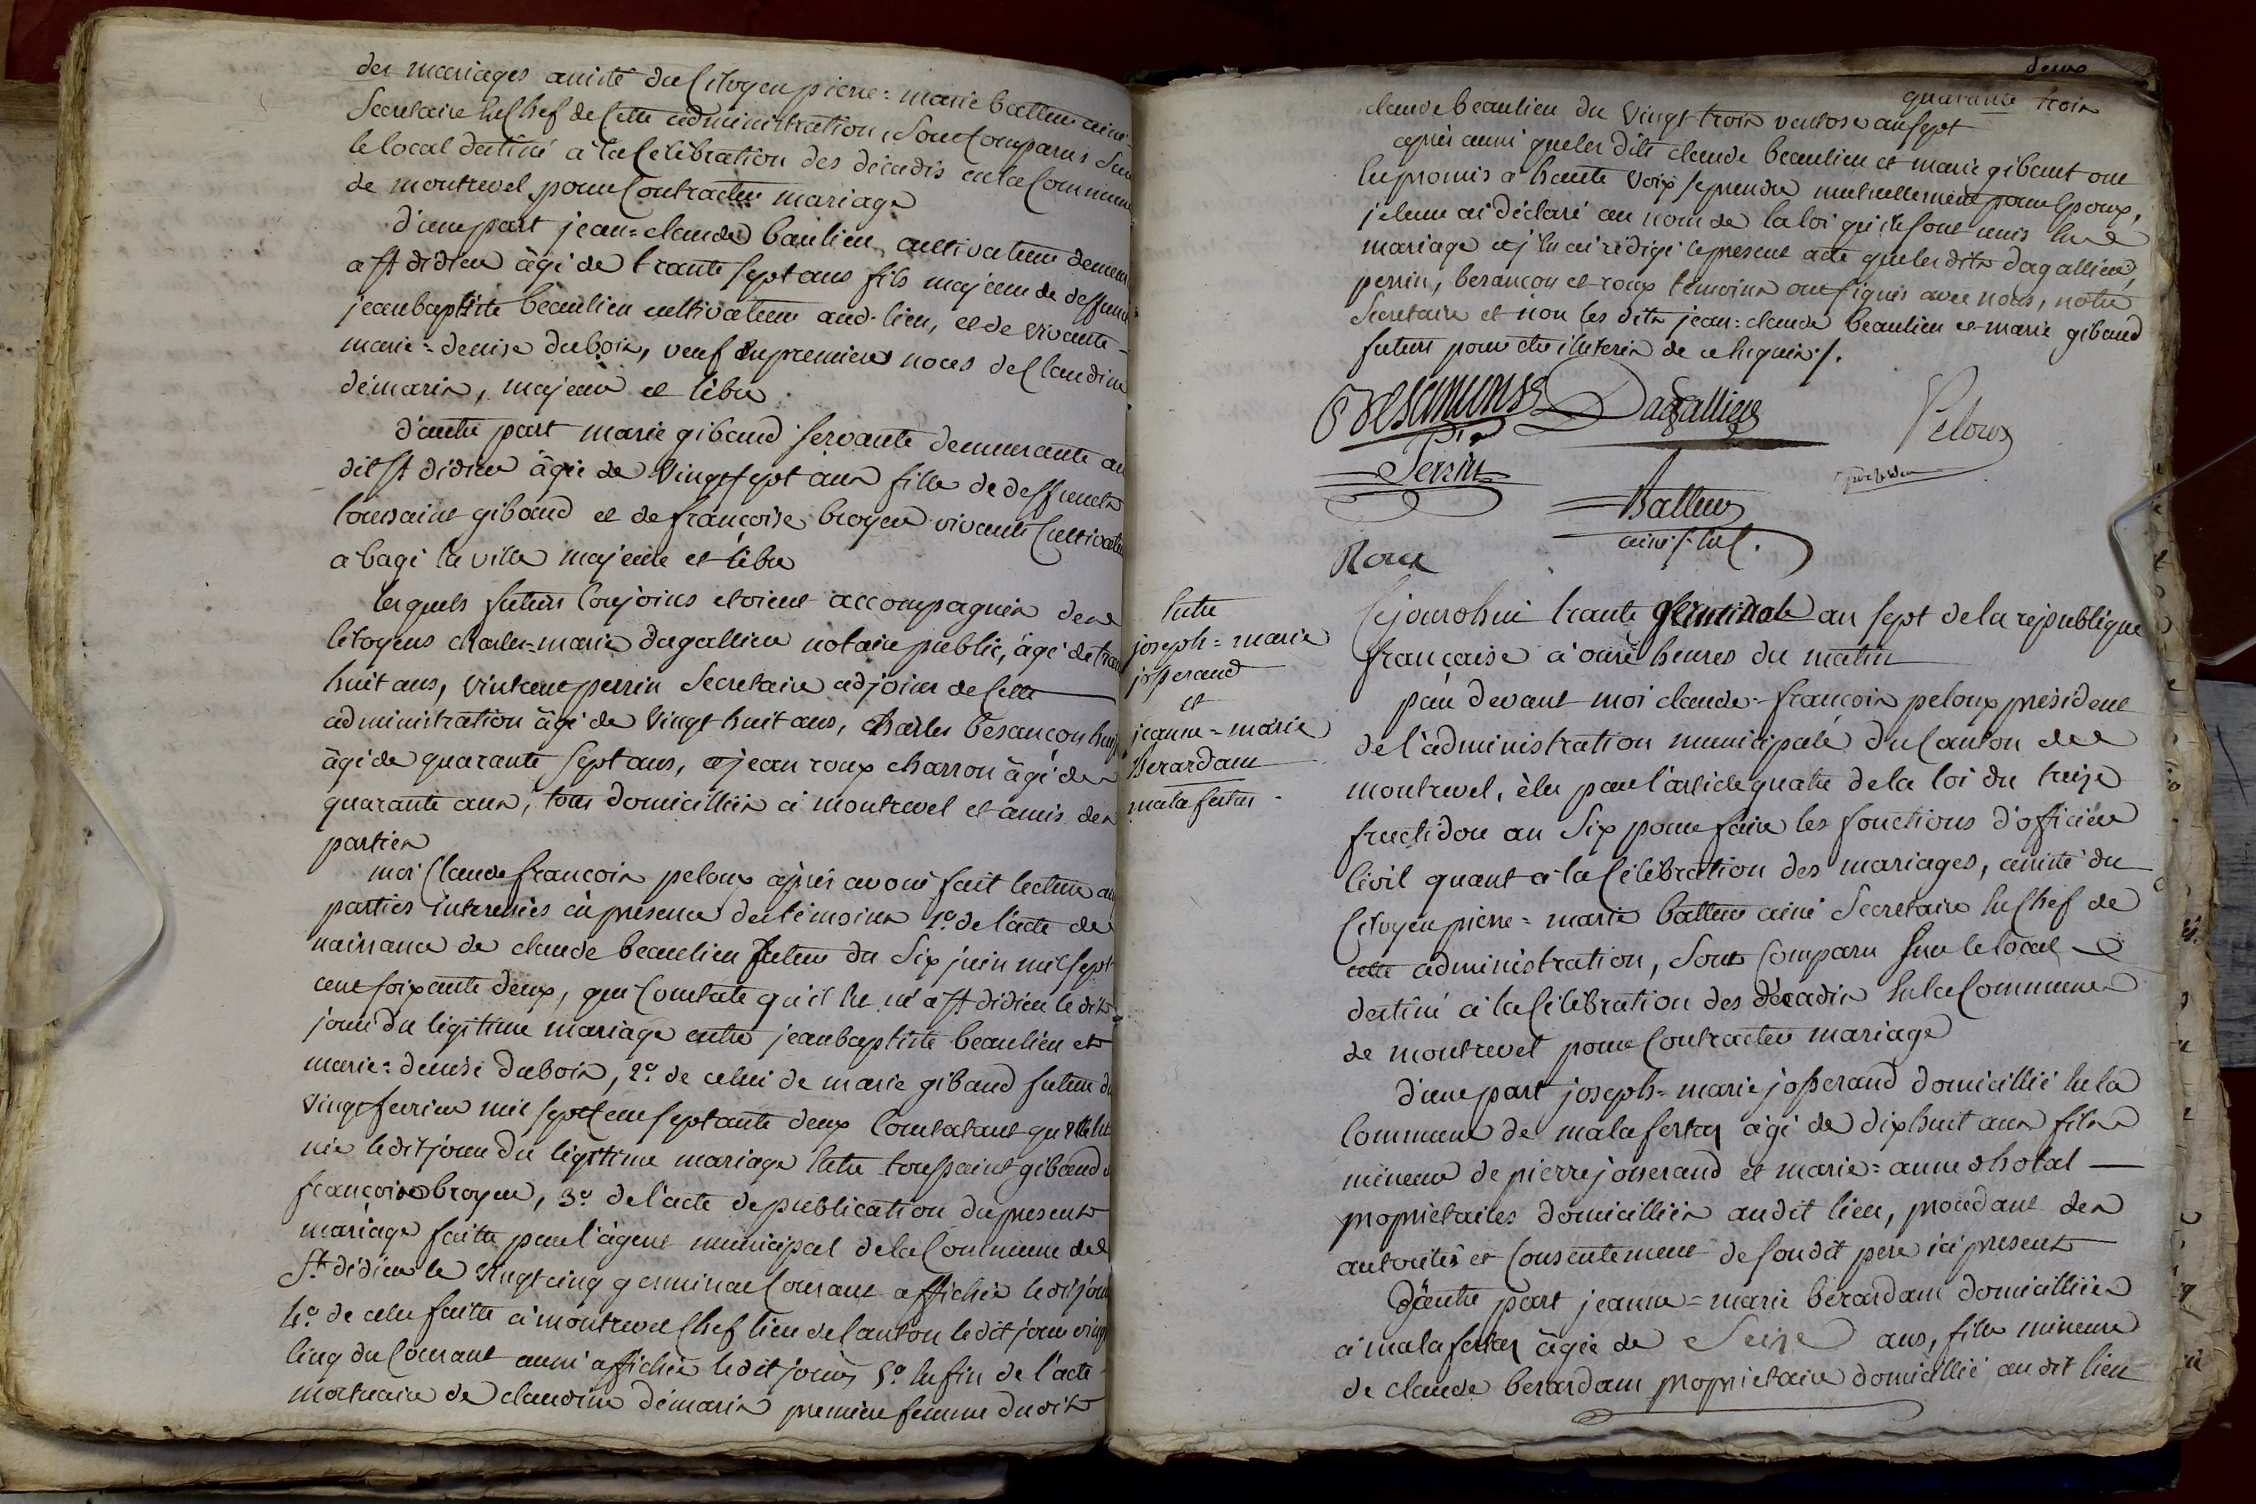 des mariages assisté du Citoyen pierre=marie batteur ainé
Secretaire en Chef de Cette administration, Sont Comparus Sur
le local destiné à la Célébration des décadis en la Commune
de montrevel pour Contracter mariage
d'une part jean=claude baulieu cultivateur demeur
a st didier âgé de trante sept ans fils majeur de deffunt
jean baptiste beaulieu cultivateur aud. lieu, et de vivante
marie=denise dubois, veuf en premieres noces de Claudine
démaris, majeur et libre
d'autre part marie gibaud servante demeurante au
dit st didier âgée de vingt sept ans fille de deffunt
toussaint gibaud et de françoise broyer vivante Cultivat
a bagé la ville majeure et libre
lesquels futurs Conjoins etoient accompagnés des
Citoyens charles=marie dagallier notaire public, âgé de tran
huit ans, vincent perrin Secretaire adjoins de Cette
administration âgé de vingt huit ans, charles besançon hui
âgé de quarante sept ans, et jean roux charron âgé de
quarante ans, tous domicilliés à montrevel et amis des
parties
moi Claude françois peloux après avoir fait lecture au
parties interessées en présence des témoins 1º de l'acte de
naissance de claude beaulieu futur du Six juin mil sept
cent soixante deux, qui Constate qu'il est né a st didier le dit
jour du légitime mariage entre jean baptiste beaulieu et
marie=denise dubois, 2º de celui de marie gibaud future du
vingt fevrier mil sept cent septante deux Constatant qu'elle est
née ledit jour du légitime mariage entre toussaint gibaud et
françoise broyer, 3º de l'acte de publication du present
mariage faitte par l'agent municipal de la Commune de
St didier le vingt cinq germinal Courant affichée ledit jour
4º de celle faitte à montrevel Chef lieu de Canton ledit jour vingt
Cinq du Courant aussi affichée ledit jour, 5º enfin de l'acte
mortuaire de claudine démaris premiere femme dudit
deux
quarante trois
claude beaulieu du vingt trois ventose an sept
après aussi que les dits claude beaulieu et marie gibaut ont
eu promis a haute voix se prendre mutuellement pour Epoux,
je leur ai déclaré au nom de la loi qu'ils sont unis en
mariage et j'en ai rédigé le present acte que lesdits dagallier,
perrin, besançon et roux témoins ont signés avec nous, notre
Secretaire et non les dits jean=claude beaulieu et marie gibaud
futurs pour etre illeteris de ce enquis ./.
Dagallier
Peloux
Perrin
president
Batteur
ainé s. en C.
Roux
Entre
joseph=marie
josserand
et
jeanne=marie
Berardam
malafertas
Cejourdhui trante germinal an sept de la république
française à onze heures du matin
par devant moi claude-françois peloux président
de l'administration municipale du Canton de
montrevel, élu par l'article quatre de la loi du treize
fructidor an Six pour faire les fonctions d'officier
Civil quant à la Célébration des mariages, assisté du
Citoyen pierre=marie batteur ainé Secretaire en Chef de
cette administration, Sont Comparu sur le local
destiné à la Célébration des décadis en la Commune
de montrevel pour Contracter mariage
d'une part joseph=marie josserand domicillié en la
Commune de malafertas âgé de dix huit ans fils
mineur de pierre josserand et marie=anne chotal
propriétaires domicilliés audit lieu, procedant des
autorités et Consentement de sondit pere ici present
D'autre part jeanne=marie bérardam domicilliée
à malafertas âgée de Seize ans, fille mineure
de claude berardam propriétaire domicillié audit lieu